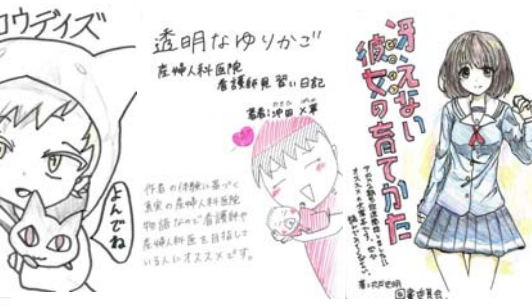 ロウデイズ
よんでね
透明なゆりかご
産婦人科医院
看護師見習い日記
著者:沖田×華
作者の体験に基づく
真実の産婦人科医院
物語なので看護師や
産婦人科医を目指して
いる人にオススメです。
冴えない
彼女の育てかた
図書委員会